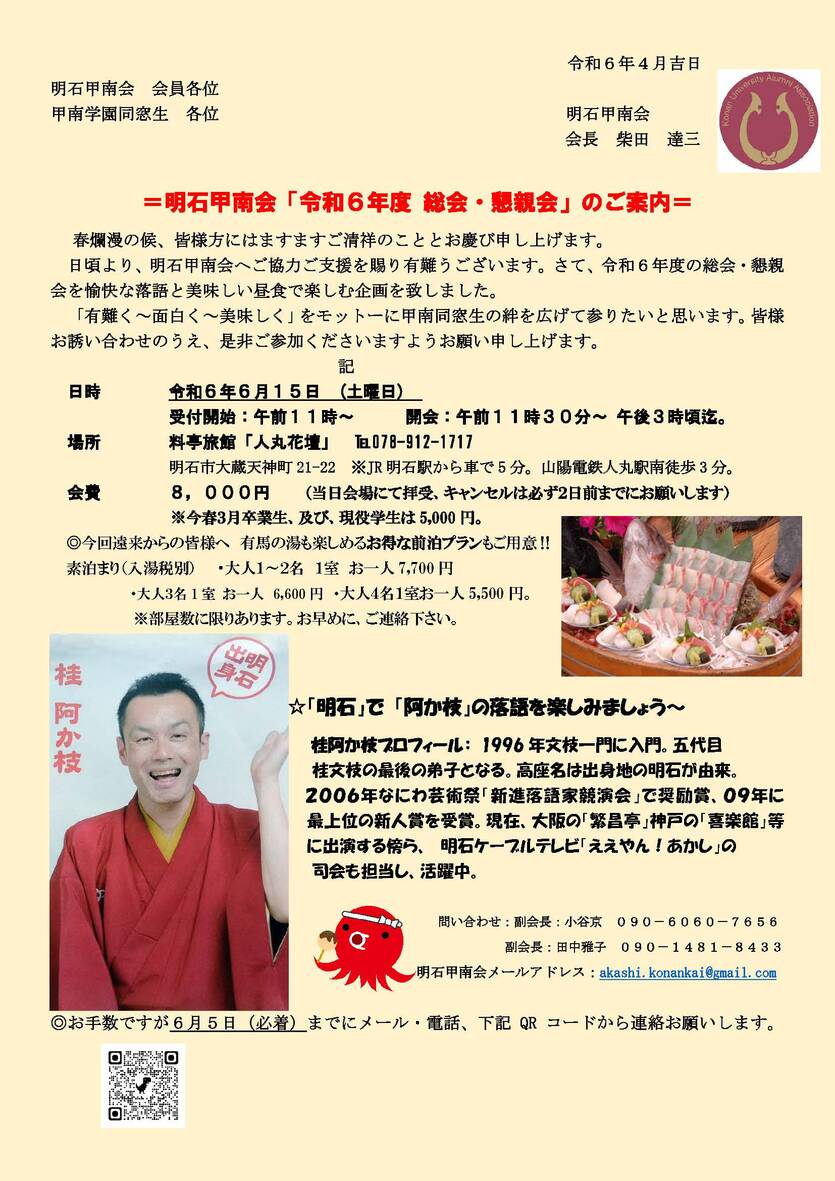 令和６年４月吉日
明石甲南会　会員各位
甲南学園同窓生　各位
明石甲南会
会長　柴田　達三
Konan University Alumni Association
＝明石甲南会「令和６年度 総会・懇親会」のご案内＝
春爛漫の候、皆様方にはますますご清祥のこととお慶び申し上げます。
日頃より、明石甲南会へご協力ご支援を賜り有難うございます。さて、令和６年度の総会・懇親
会を愉快な落語と美味しい昼食で楽しむ企画を致しました。
「有難く～面白く～美味しく」をモットーに甲南同窓生の絆を広げて参りたいと思います。皆様
お誘い合わせのうえ、是非ご参加くださいますようお願い申し上げます。
記
日時　令和６年６月１５日　（土曜日）
受付開始：午前１１時～　　開会：午前１１時３０分～ 午後３時頃迄。
場所　料亭旅館「人丸花壇」　℡078-912-1717
明石市大蔵天神町 21-22　※JR 明石駅から車で 5 分。山陽電鉄人丸駅南徒歩 3 分。
会費　８，０００円　（当日会場にて拝受、キャンセルは必ず2日前までにお願いします）
※今春3月卒業生、及び、現役学生は 5,000 円。
◎今回遠来からの皆様へ　有馬の湯も楽しめるお得な前泊プランもご用意!!
素泊まり（入湯税別）　・大人1～2名　1室　お一人 7,700 円
・大人3名 1 室　お一人　6,600 円　・大人4名1室お一人 5,500 円。
※部屋数に限りあります。お早めに、ご連絡下さい。
明石出身
桂 阿か枝
☆「明石」で「阿か枝」の落語を楽しみましょう～
桂阿か枝プロフィール： 1996 年文枝一門に入門。五代目
桂文枝の最後の弟子となる。高座名は出身地の明石が由来。
２００６年なにわ芸術祭「新進落語家競演会」で奨励賞、０９年に
最上位の新人賞を受賞。現在、大阪の「繁昌亭」神戸の「喜楽館」等
に出演する傍ら、　明石ケーブルテレビ「ええやん！あかし」の
司会も担当し、活躍中。
問い合わせ：副会長：小谷京　０９０－６０６０－７６５６
副会長：田中雅子　０９０－１４８１－８４３３
明石甲南会メールアドレス：akashi.konankai@gmail.com
◎お手数ですが６月５日（必着）までにメール・電話、下記 QR コードから連絡お願いします。